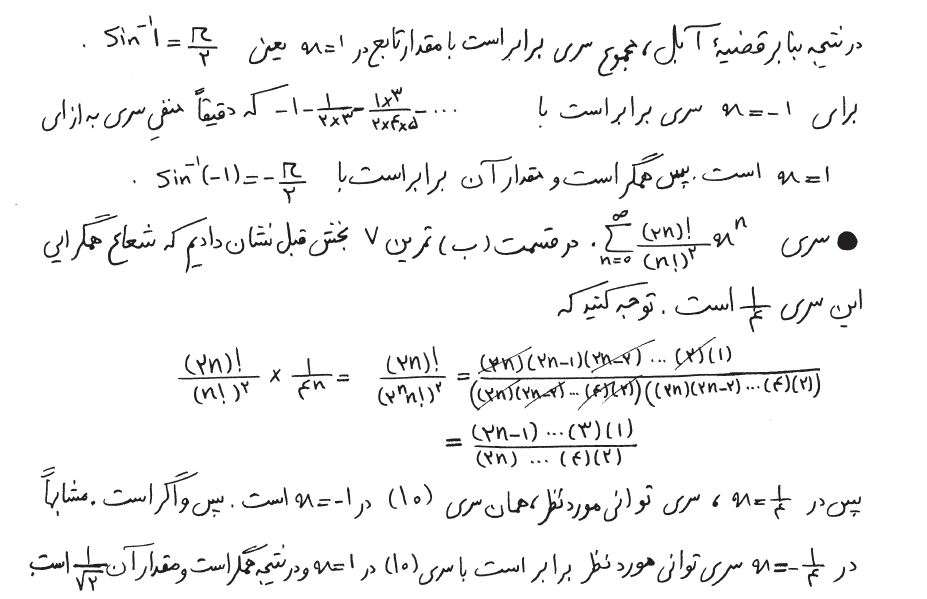 در نتیجه بنابر قضیهٔ آبل، مجموع سری برابر است با مقدار تابع در x=۱ یعنی Sin⁻¹۱ = π/۲ .
برای x=-۱ سری برابر است با -۱ - ۱/(۲×۳) - (۱×۳)/(۲×۴×۵) - ... که دقیقاً منفی سری به ازای
x=۱ است. پس همگراست و مقدار آن برابر است با Sin⁻¹(-۱) = -π/۲ .
● سری ∑_{n=۰}^{∞} (۲n)!/(n!)^۲ x^n . در قسمت (ب) تمرین ۷ بخش قبل نشان دادیم که شعاع همگرایی
این سری ۱/۴ است. توجه کنید که
(۲n)!/(n!)^۲ × ۱/۴^n = (۲n)!/(۲^n n!)^۲ = (۲n)(۲n-۱)(۲n-۲)...(۲)(۱) / ((۲n)(۲n-۲)...(۴)(۲))((۲n)(۲n-۲)...(۴)(۲))
= (۲n-۱)...(۳)(۱) / (۲n)...(۴)(۲)
پس در x=۱/۴ ، سری توانی مورد نظر، همان سری (۱۰) در x=-۱ است. پس واگراست. مشابهاً
در x=-۱/۴ سری توانی مورد نظر برابر است با سری (۱۰) در x=۱ و در نتیجه همگراست و مقدار آن ۱/√۲ است